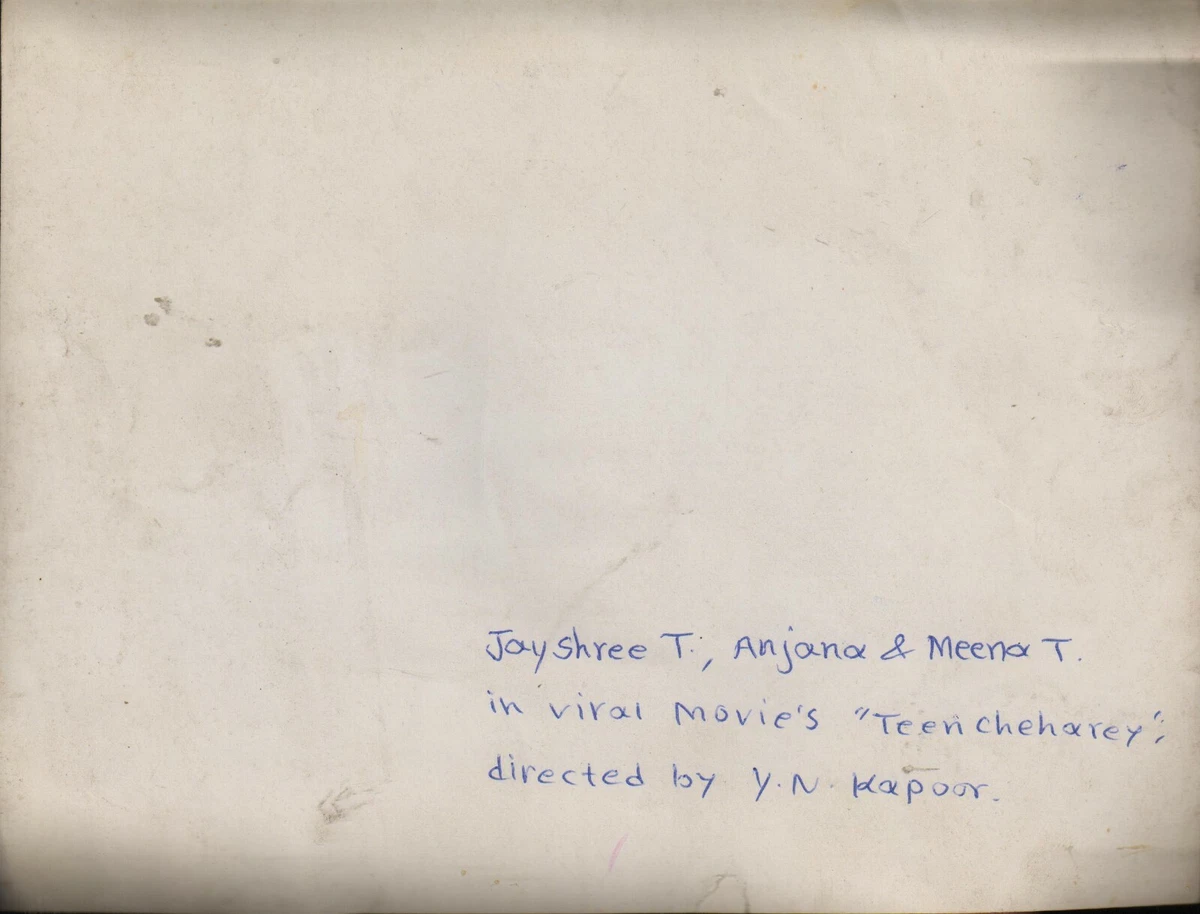 Jayshree T., Anjana & Meena T.
in viral Movie's "Teen cheharey",
directed by Y.N. Kapoor.